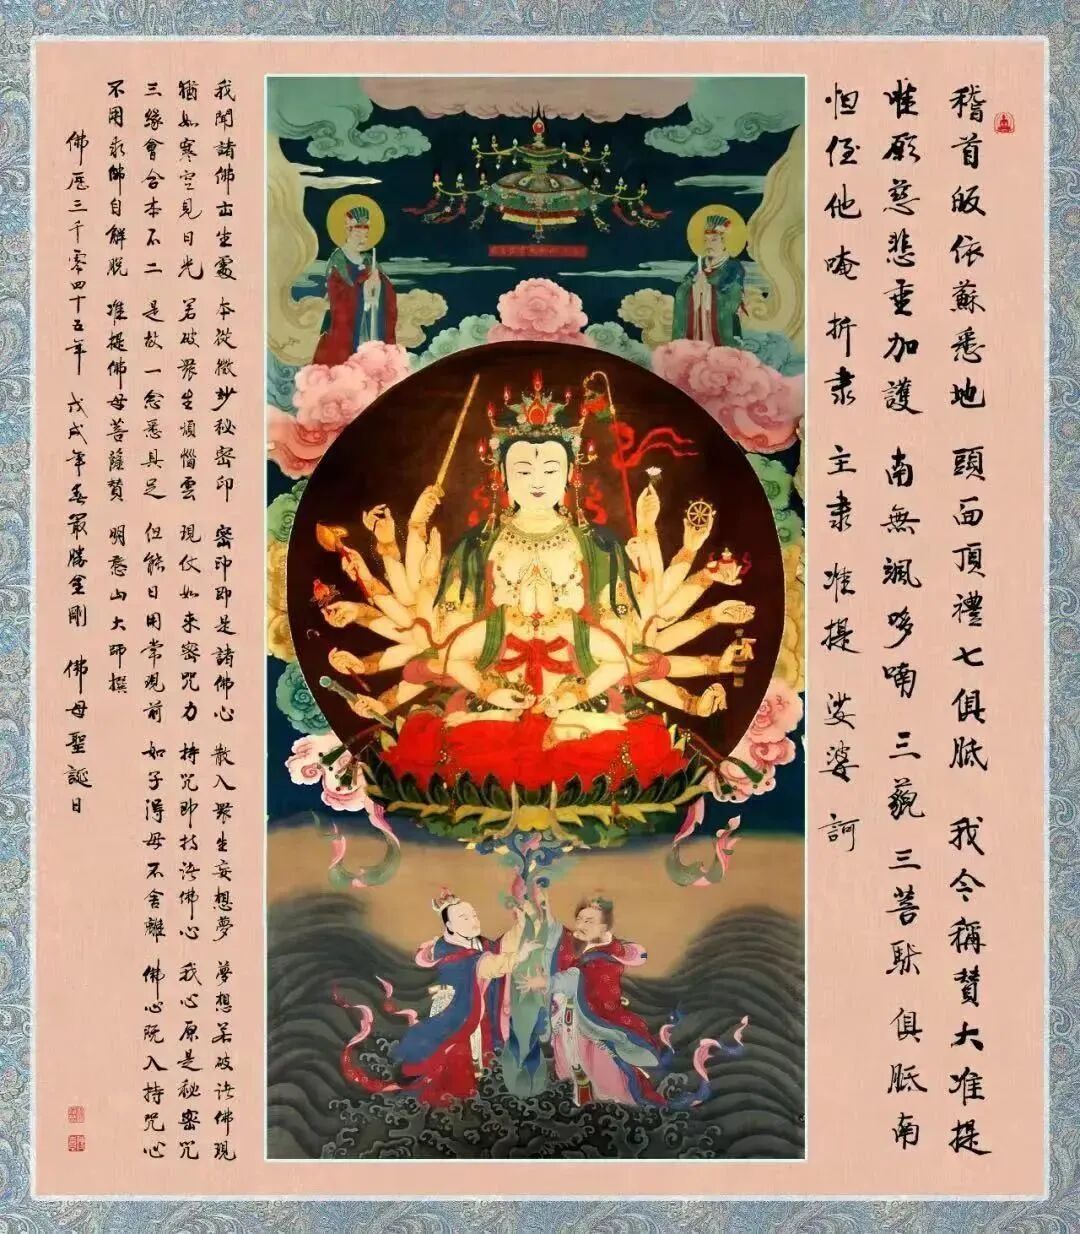 稽首皈依蘇悉地 頭面頂禮七俱胝 我今稱贊大准提
唯願慈悲垂加護 南無颯哆喃 三藐三菩馱 俱胝南
怛侄他 唵 折隶 主隶 准提 娑婆訶
我聞諸佛出生處 本從微妙秘密印 密印即是諸佛心 散入眾生妄想夢 夢想若破諸佛現
猶如寒空見日光 若破眾生煩惱雲 現仗如来密咒力 持咒即持諸佛心 我心原是秘密咒
三緣會合本不二 是故一念悉具足 但能日用常現前 如子得母不舍離 佛心既入持咒心
不用求佛自解脫 准提佛母菩薩贊 明憨山大師撰
佛歷三千零四十五年 戊戌年春最勝金剛 佛母聖誕日